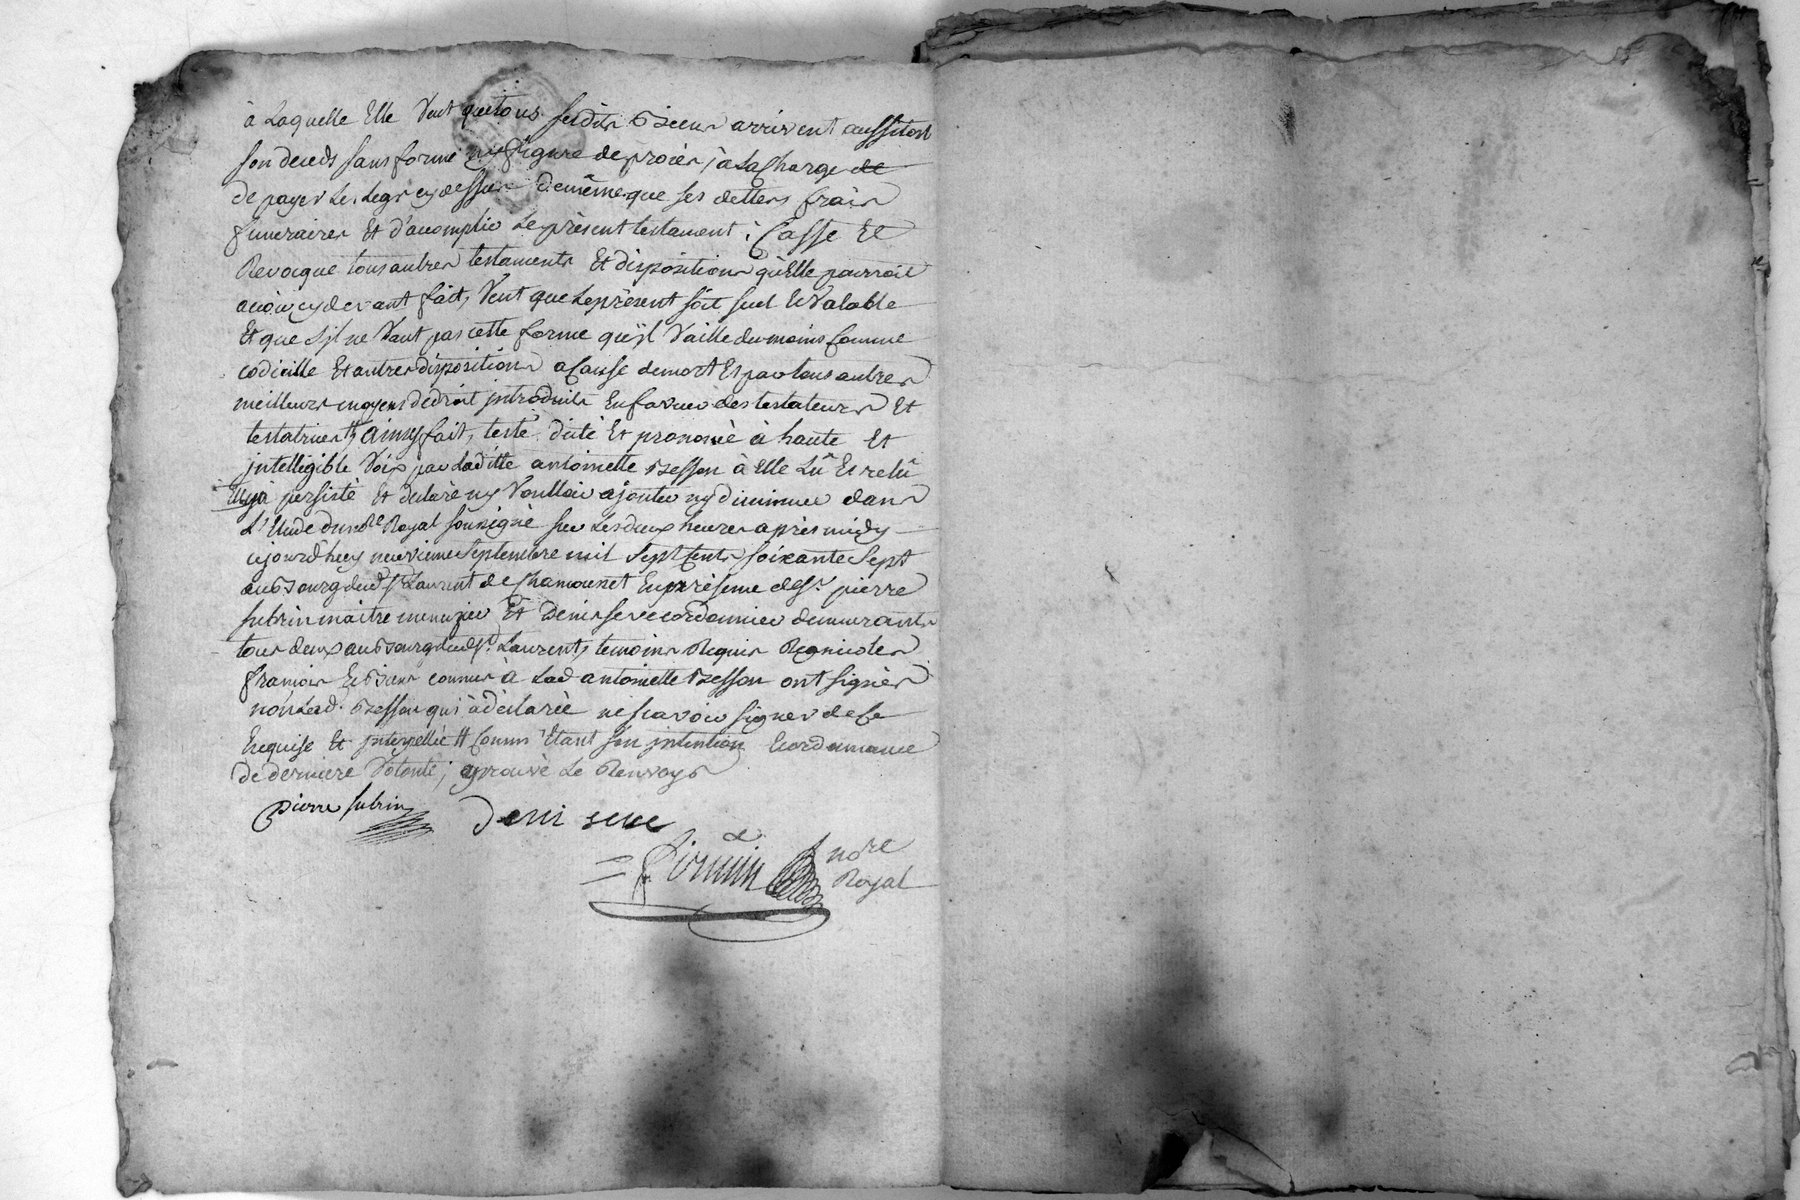 à Laquelle Elle Veut que tous sesdits Biens arrivent aussitost
son deceds sans forme ny figure de procés, à La Charge de
de payer Le. Legs cy dessus demême que ses dettes frais
funeraires Et d'acomplir Le présent testament, Casse Et
Revocque tous autres testaments Et dispositions qu'Elle pourroit
avoir cy devant fait, Veut que Le présent soit seul Et Valable
Et que s'jl ne Vaut pas cette forme qu'jl Vaille du moins Comme
codicille Et autres disposition a Cause de mort Et par tous autres
meilleurs moyens de droit jntroduits En faveur des testateurs Et
testatrices, ainsy fait, testé, dicté Et prononcé à haute Et
jntelligible Voix par Laditte antoinette Besson à Elle Lû Et relû
a persisté Et declaré ny Voulloir ajouter ny diminuer dans
L'Etude du nore Royal soussigné sur Les deux heures aprés midy
ajourd'huy neuvieme Septembre mil Sept Cents Soixante Sept
au Bourg dud. St. Laurent de Chamousset En présence de Sr. pierre
subrin maitre menuzier Et Denis seve cordonnier demeurants
tous deux au Bourg dud. St. Laurent, temoins Requis Regnicoles
francois Et Biens connus à Lad antoinette Besson ont signés
non Lad. Besson qui à déclarée ne scavoir signer de Ce
Enquise Et jnterpellée Comm'Etant son jntention Et ordonnance
de derniere Volonté; aprouvé Le Renvoys
Pierre subrin
Deni seve
nore
Royal